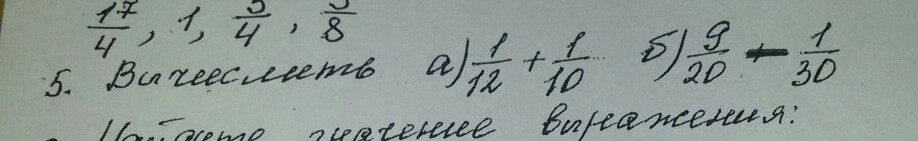 17/4, 1, 3/4, 3/8
5. Вычислить а) 1/12 + 1/10 б) 9/20 - 1/30
Найдите значение выражения: